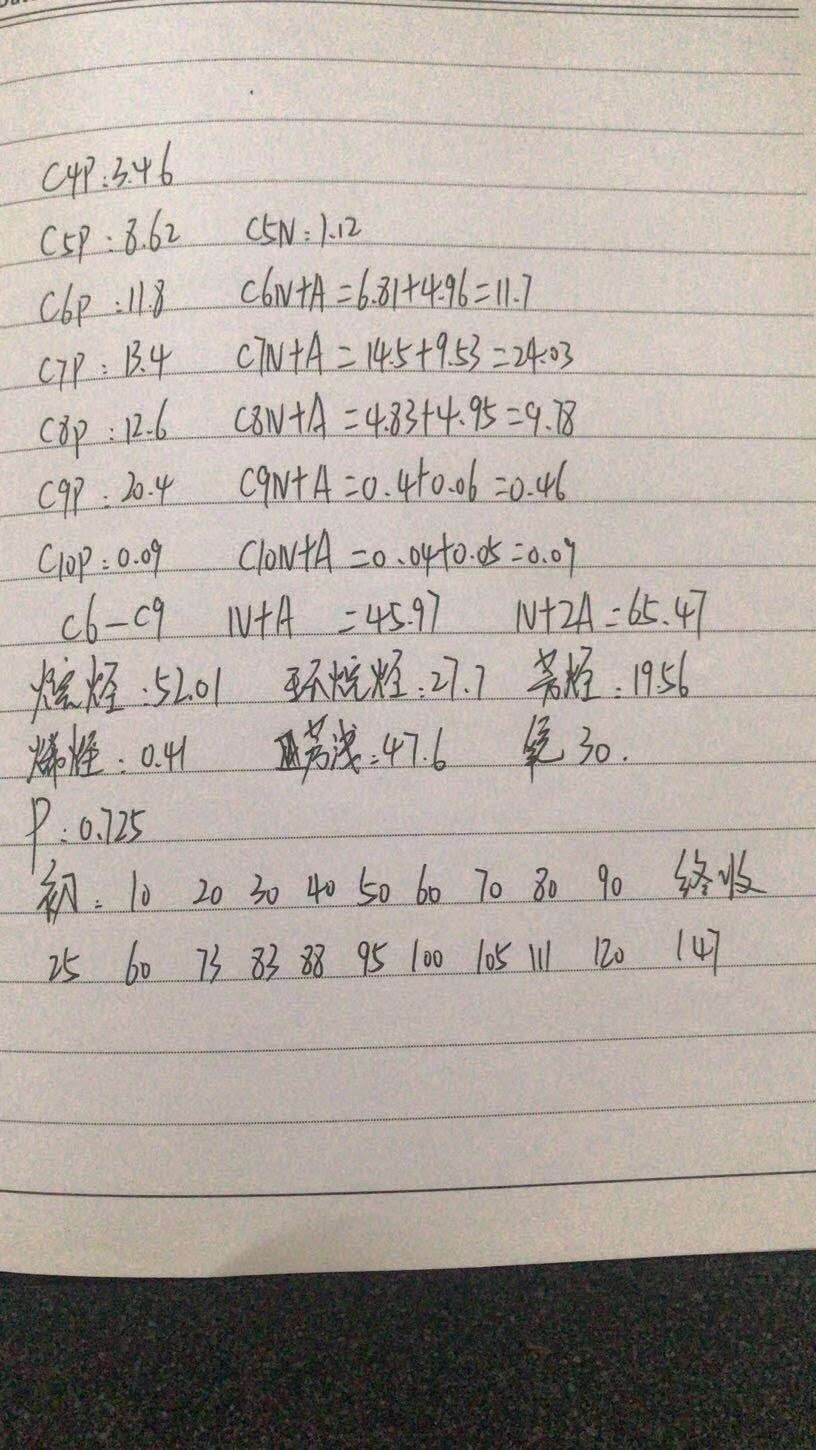 C4P:3.46
C5P:8.62 C5N:1.12
C6P:11.8 C6N+A=6.81+4.96=11.7
C7P:13.4 C7N+A=14.5+9.53=24.03
C8P:12.6 C8N+A=4.83+4.95=9.78
C9P:20.4 C9N+A=0.4+0.06=0.46
C10P:0.09 C10N+A=0.04+0.05=0.09
C6-C9 N+A =45.97 N+2A=65.47
烷烃:52.01 环烷烃:27.7 芳烃:19.56
烯烃:0.41 芳浅:47.6 30.
P:0.725
初: 10 20 30 40 50 60 70 80 90 终收
25 60 73 83 88 95 100 105 111 120 147